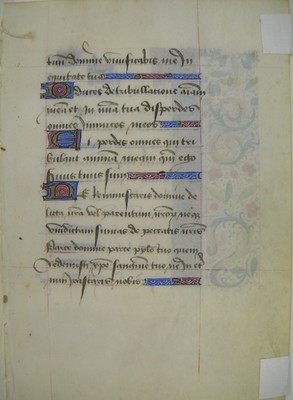 tuum domine vivificabis me In
equitate tua
Educes de tribulacione animam
meam et In mia tua disperdes
omnes Inimicos meos
Et perdes omnes qui tri
bulant animam meam qm ego
servus tuus sum
Ne Reminiscaris domine de
licta nra vel parentum nrorum neque
vindictam sumas de peccatis nris
Parce domine parce pplo tuo quem
Redemisti xpe sanguine tuo ne In et
num Irascaris nobis